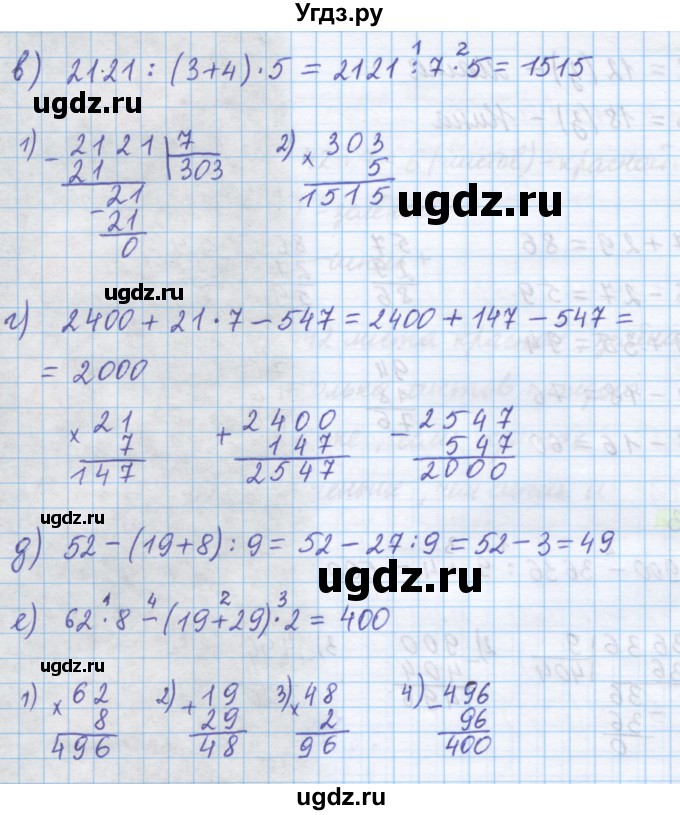 Угдз.ру
в) 2121 : (3+4) · 5 = 2121 : 7 · 5 = 1515
1 2
ugdz.ru
1) - 2121 | 7
21 303
21
- 21
0
2) × 303
5
1515
ugdz.ru
ugdz.ru
г) 2400 + 21 · 7 − 547 = 2400 + 147 − 547 =
= 2000
× 21
7
147
+ 2400
147
2547
- 2547
547
2000
ugdz.ru
д) 52 − (19+8) : 9 = 52 − 27 : 9 = 52 − 3 = 49
ugdz.ru
1 4 2 3
е) 62 · 8 − (19+29) · 2 = 400
ugdz.ru
1) × 62
8
496
2) + 19
29
48
3) × 48
2
96
4) - 496
96
400
ugdz.ru